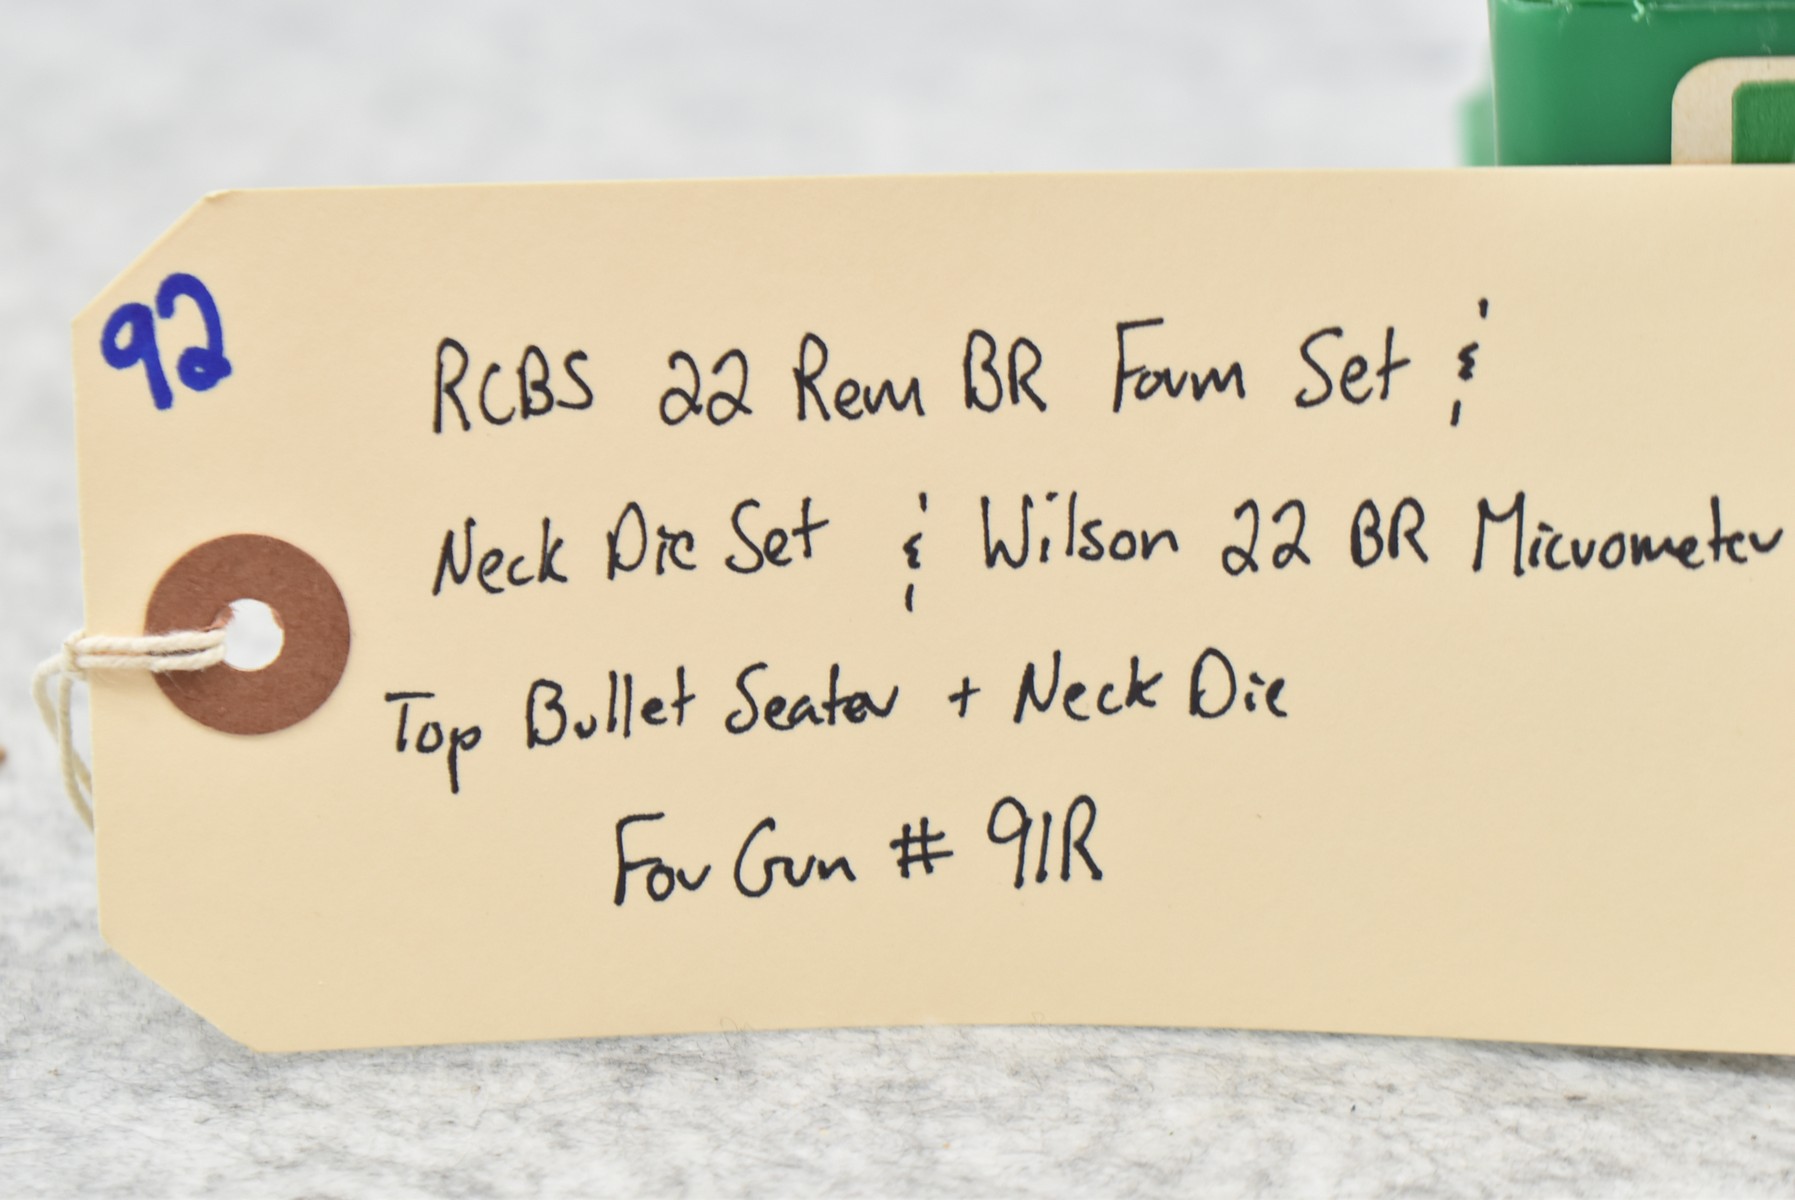 92
RCBS 22 Rem BR Form Set &
Neck Die Set & Wilson 22 BR Micrometer
Top Bullet Seater + Neck Die
For Gun # 91R